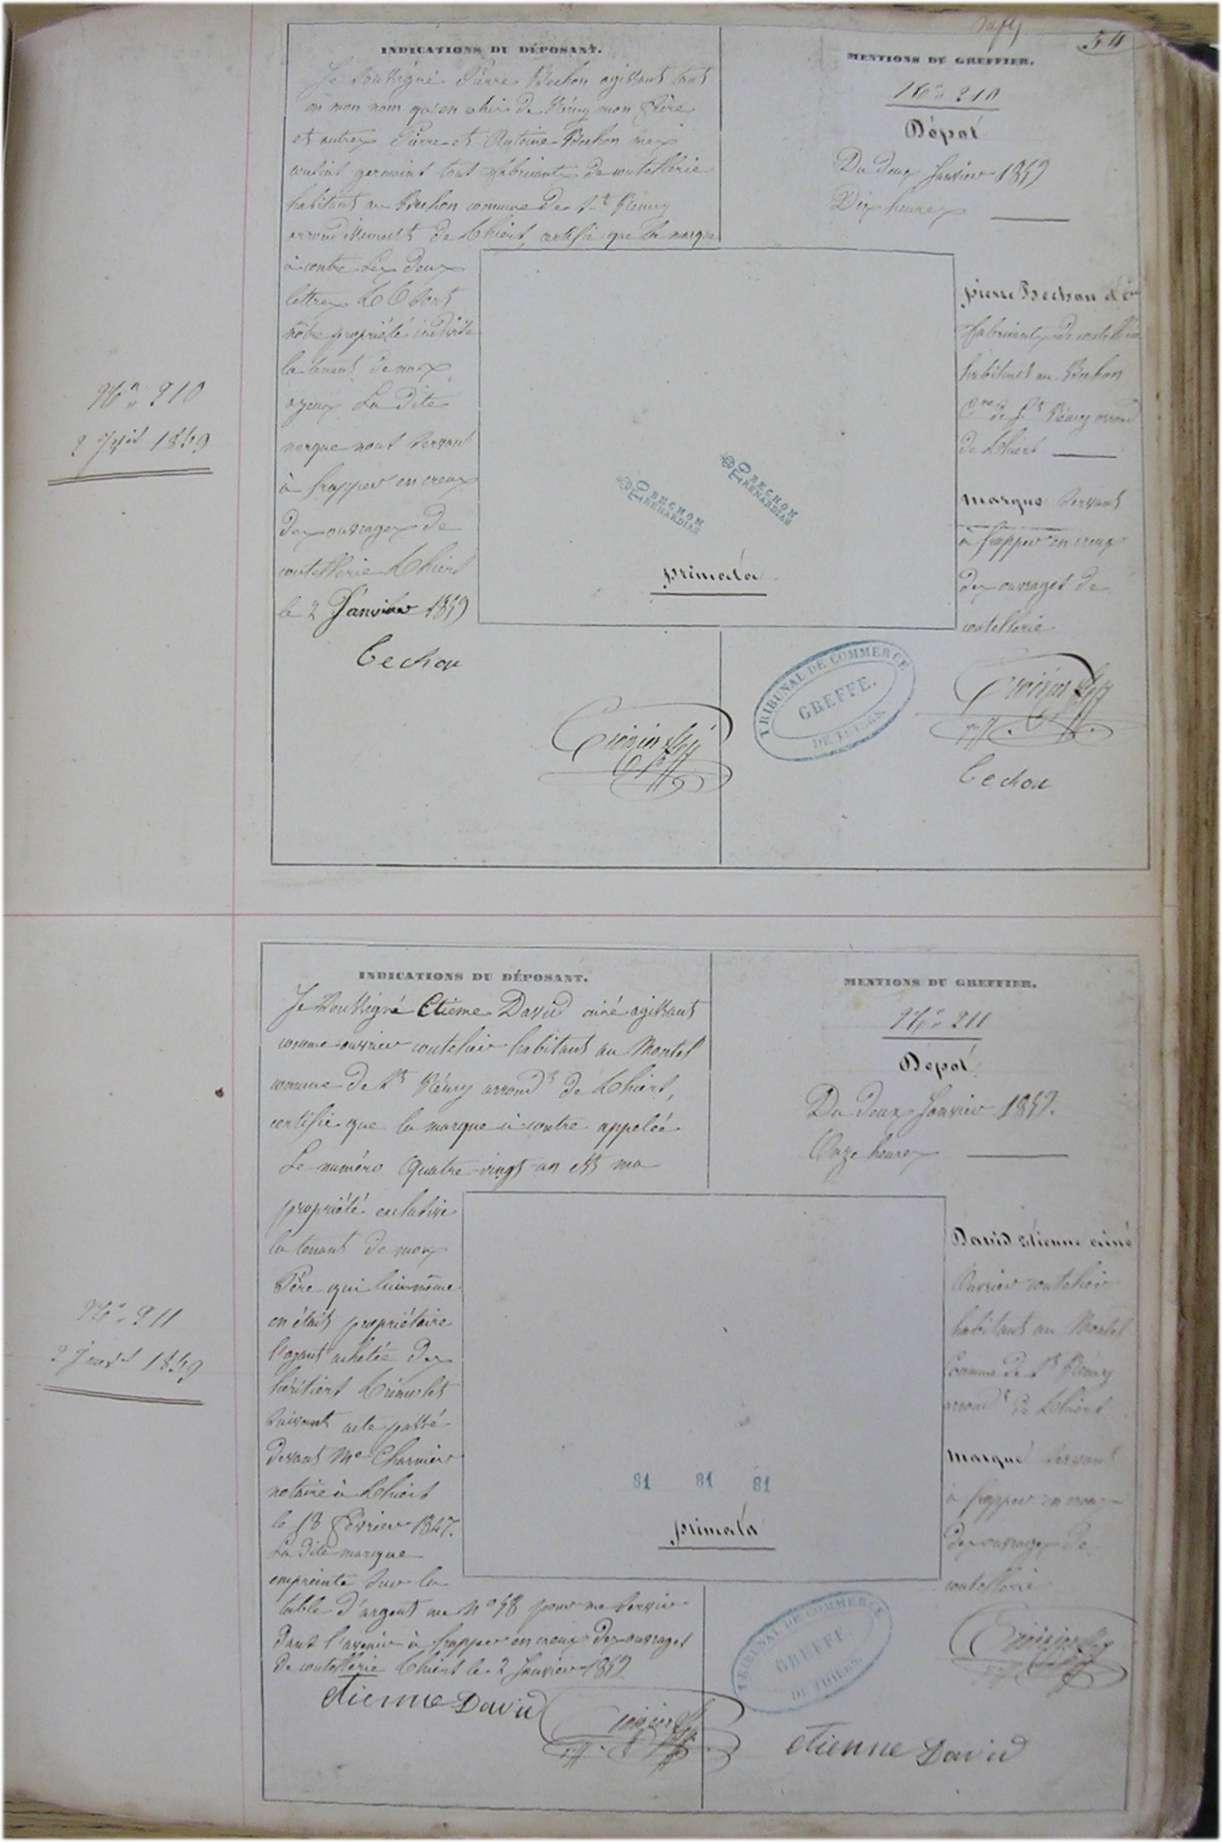 54
INDICATIONS DU DÉPOSANT.
Je soussigné Pierre Bechon agissant tant
en mon nom qu'en celui de Rémy mon frère
et autres Pierre et Antoine Bechon mes
cousins germains tous fabricants de coutellerie
habitant au Bechon commune de St Rémy
arrondissement de Thiers, certifie que la marque
à contre les deux
lettres
notre propriété indivise
la tenant de nos
ayeux La dite
marque nous servant
à frapper en creux
des ouvrages de
coutellerie Thiers
le 2 Janvier 1859
bechon
MENTIONS DU GREFFIER.
No 210
Dépôt
Du deux Janvier 1859
Dix heures
pierre Bechon
fabricants de coutellerie
habitant au Bechon
Cne de St Rémy arrond
de Thiers
marque servant
à frapper en creux
des ouvrages de
coutellerie
BECHON
RENARDIAS
BECHON
RENARDIAS
primata
TRIBUNAL DE COMMERCE
GREFFE.
DE THIERS.
bechon
No 210
2 Jer 1859
INDICATIONS DU DÉPOSANT.
Je soussigné Etienne David ainé agissant
comme ouvrier coutelier habitant au Montel
commune de St Rémy arrondt de Thiers,
certifie que la marque à contre appelée
Le numéro Quatre-vingt un est ma
propriété exclusive
la tenant de mon
Père qui lui même
en était propriétaire
l'ayant achetée des
héritiers
suivant acte passé
devant Me Charnier
notaire à Thiers
le 18 février 1847.
La dite marque
empreinte sur la
table d'argent au No 58 pour me servir
dans l'avenir à frapper en creux des ouvrages
de coutellerie Thiers le 2 Janvier 1859
etienne David
MENTIONS DU GREFFIER.
No 211
Dépôt
Du deux Janvier 1859.
Onze heures
David etienne ainé
Ouvrier coutelier
habitant au Montel
Commune de St Rémy
arrondt de Thiers
marque servant
à frapper en creux
des ouvrages de
coutellerie
81 81 81
primata
TRIBUNAL DE COMMERCE
GREFFE.
DE THIERS.
etienne David
No 211
2 Janvier 1859